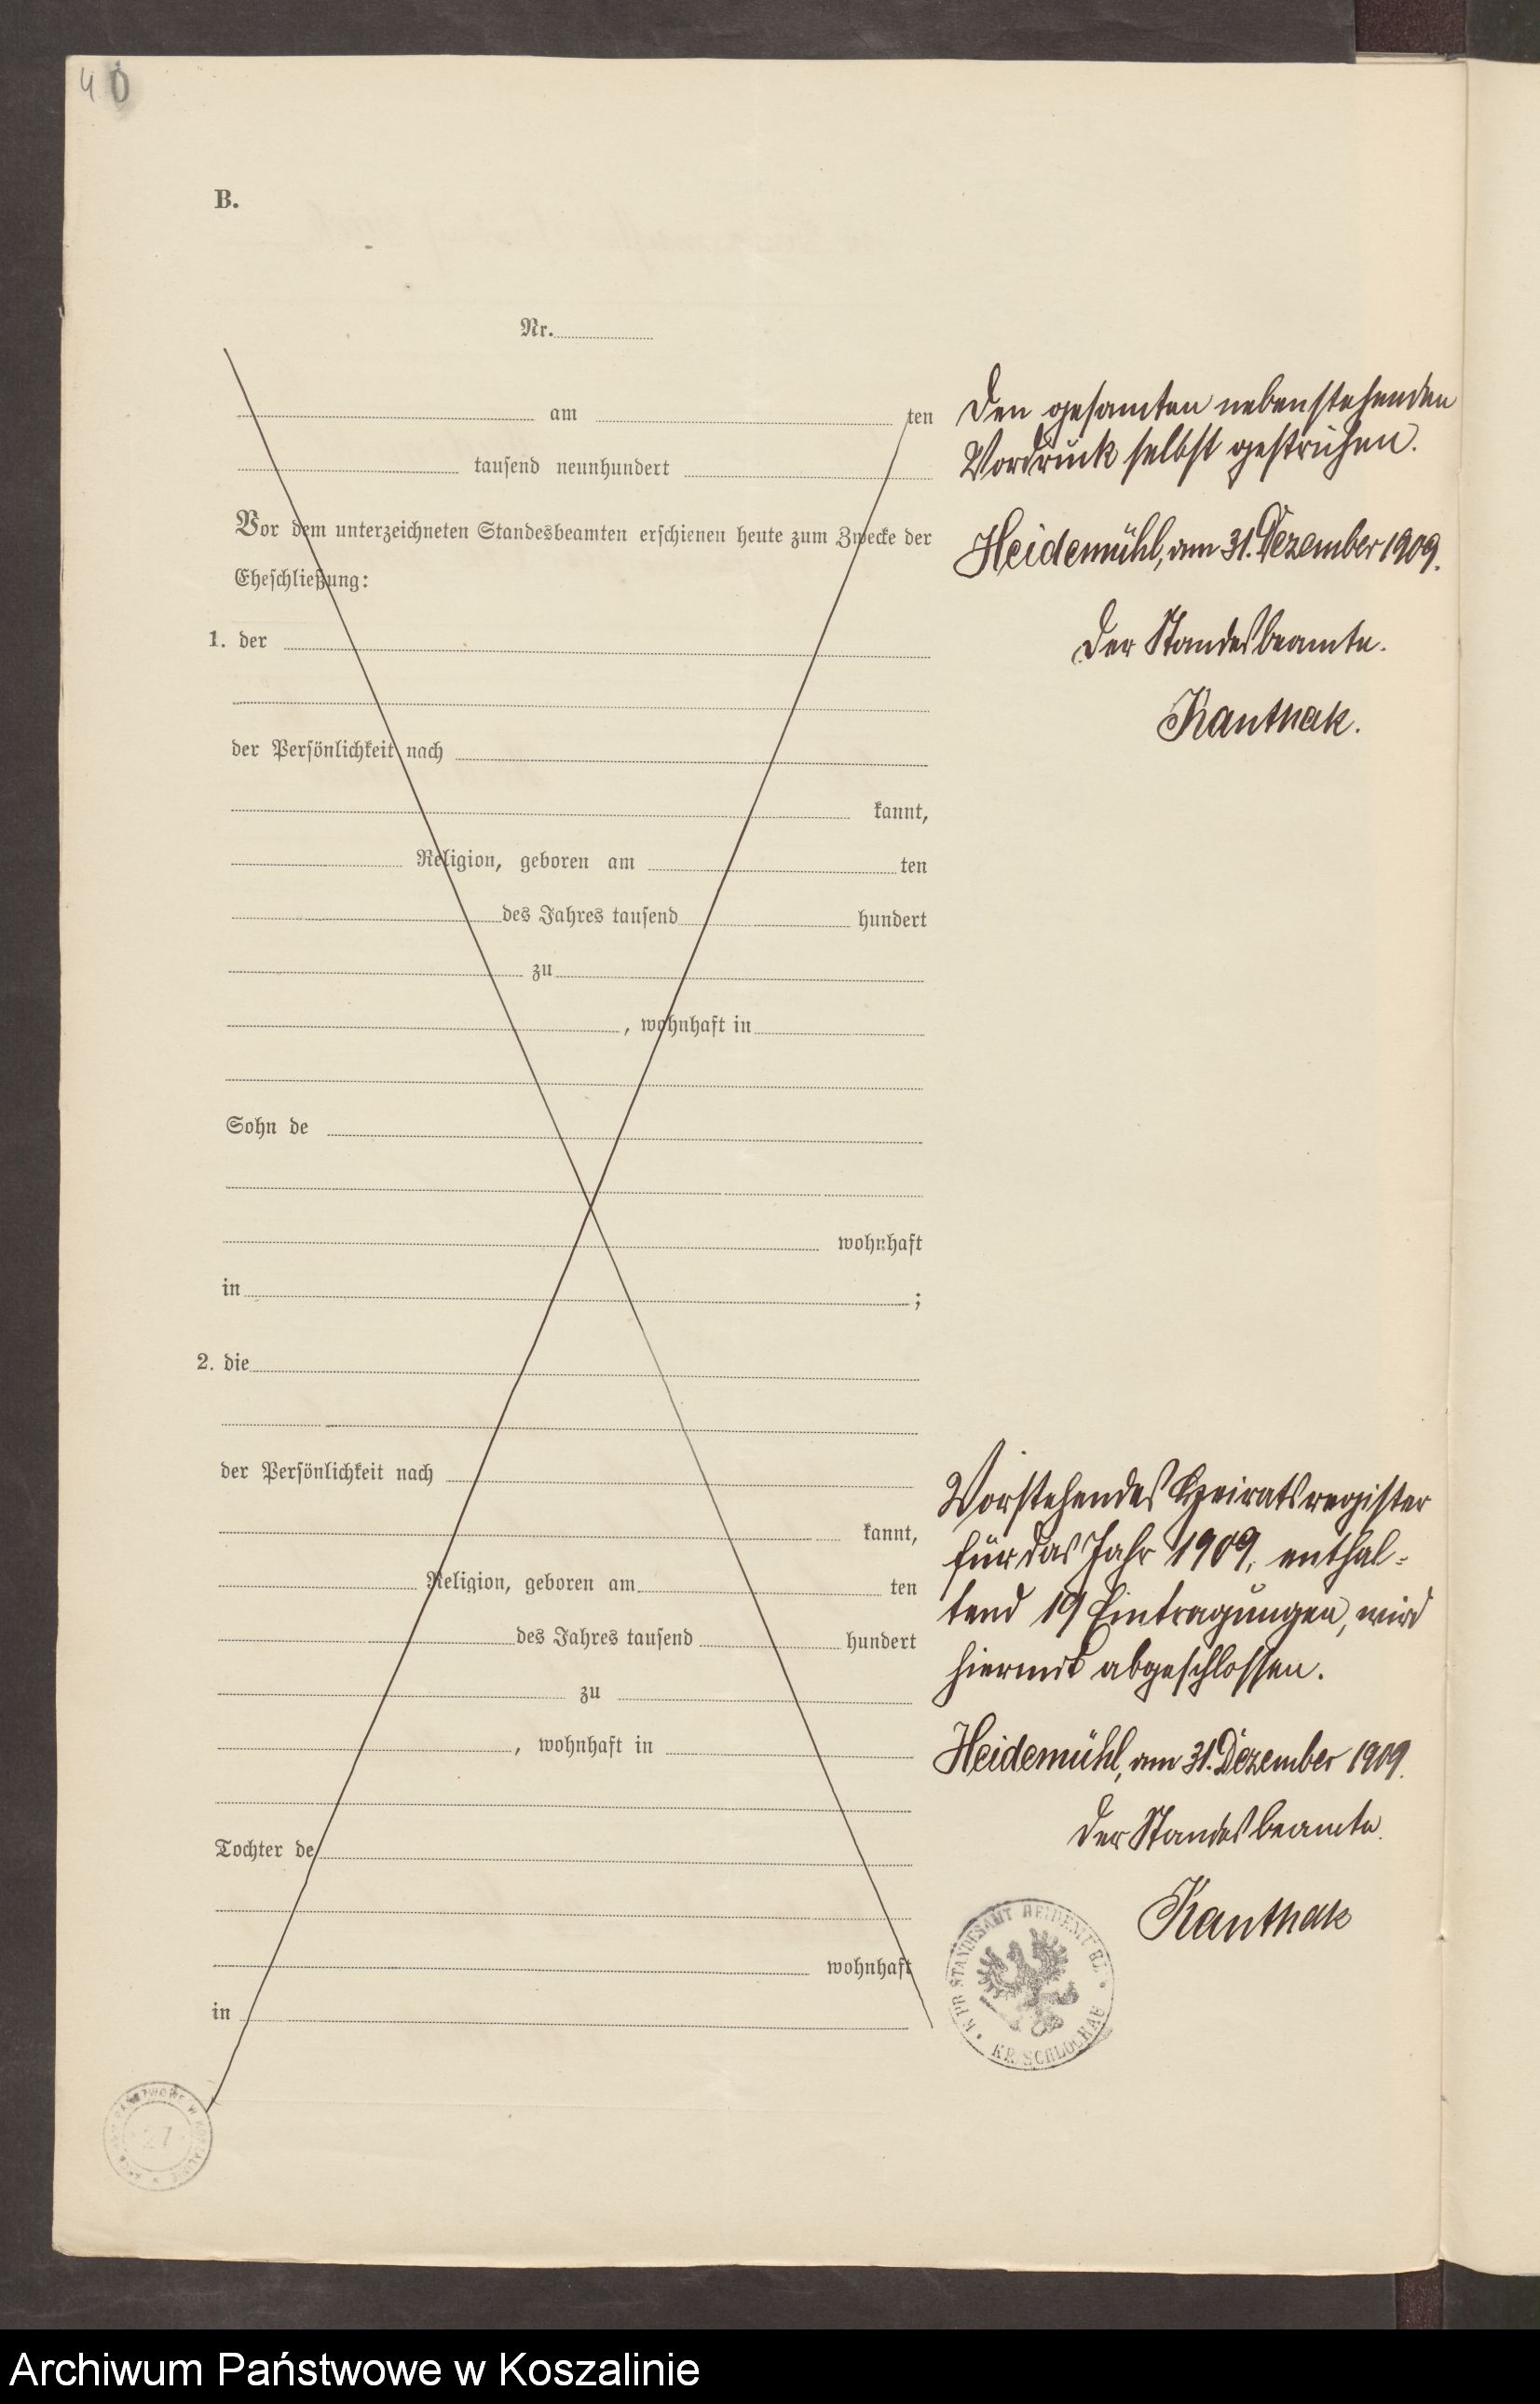 40
B.
Nr.
am ten
tausend neunhundert
Vor dem unterzeichneten Standesbeamten erschienen heute zum Zwecke der
Eheschließung:
1. der
der Persönlichkeit nach
kannt,
Religion, geboren am ten
des Jahres tausend hundert
zu
, wohnhaft in
Sohn de
wohnhaft
in ;
2. die
der Persönlichkeit nach
kannt,
Religion, geboren am ten
des Jahres tausend hundert
zu
, wohnhaft in
Tochter de
wohnhaft
in
Den gesamten nebenstehenden
Vordruck selbst gestrichen.
Heidemühl, am 31. Dezember 1909.
Der Standesbeamte.
Kanthak.
Vorstehendes Heiratsregister
für das Jahr 1909, enthal-
tend 19 Eintragungen, wird
hiermit abgeschlossen.
Heidemühl, am 31. Dezember 1909.
Der Standesbeamte.
Kanthak
K. PR. STANDESAMT HEIDEMÜHL
KR. SCHLOCHAU
PAŃSTWOWE W KOSZALINIE
27
Archiwum Państwowe w Koszalinie